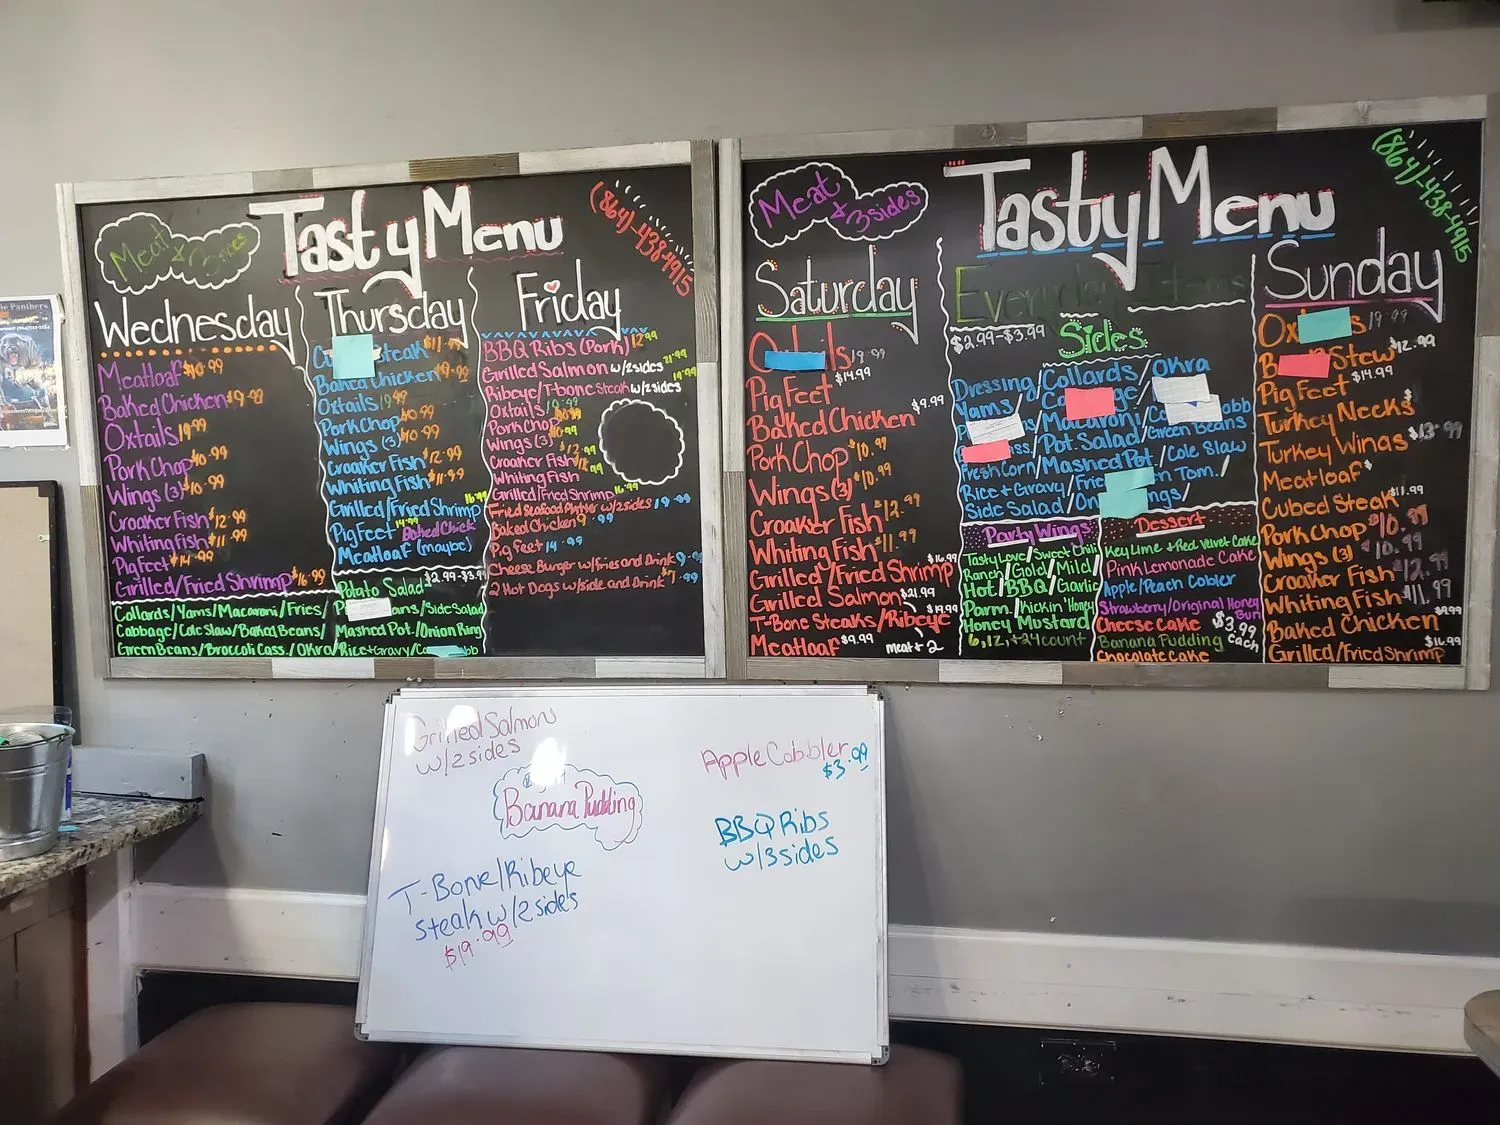 Tasty Menu
Meat
& 3 sides
(864)-438-4915
Wednesday
Meatloaf $10.99
Baked Chicken $9.99
Oxtails 19.99
Pork Chop $10.99
Wings (3) $10.99
Croaker Fish $12.99
Whiting Fish $11.99
Pig Feet $14.99
Grilled/Fried Shrimp $16.99
Collards/Yams/Macaroni/Fries/
Cabbage/Cole Slaw/Baked Beans/
Green Beans/Broccoli Cass./Okra/
Thursday
Steak $11.99
Baked Chicken
Oxtails 19.99
Pork Chop $10.99
Wings (3) $10.99
Croaker Fish $12.99
Whiting Fish $11.99
Grilled/Fried Shrimp 16.99
Pig Feet 14.99 Baked Chick
Meatloaf (maybe)
Potato Salad $2.99-$3.99
/Side Salad
Mashed Pot./Onion Ring
Rice+Gravy/
Friday
BBQ Ribs (Pork) 12.99
Grilled Salmon w/2 sides 21.99
Ribeye/T-bone Steak w/2 sides 19.99
Oxtails
Pork Chop
Wings (3)
Croaker Fish $12.99
Whiting Fish
Grilled/Fried Shrimp 16.99
Fried Seafood Platter w/2 sides 19.99
Baked Chicken 9.99
Pig Feet 14.99
Cheese Burger w/Fries and Drink 9.99
2 Hot Dogs w/side and Drink $7.99
Tasty Menu
Meat
& 3 sides
(864)-438-4915
Saturday
19.99
Pig Feet $14.99
Baked Chicken $9.99
Pork Chop $10.99
Wings (3) $10.99
Croaker Fish $12.99
Whiting Fish $11.99
Grilled/Fried Shrimp $16.99
Grilled Salmon $21.99
T-Bone Steaks/Ribeye $19.99
Meatloaf $9.99 meat + 2
Everyday Items
$2.99-$3.99
Sides
Dressing/Collards/Okra
Yams/
Macaroni/
Pot Salad/Green Beans
Fresh Corn/Mashed Pot/Cole Slaw
Rice + Gravy/ Tom./
Side Salad/
Party Wings
Tasty Love/Sweet Chili
Ranch/Gold/Mild/
Hot/BBQ/Garlic
Parm./Kickin' Honey
Honey Mustard
6,12,+24 count
Dessert
Key Lime + Red Velvet Cake
Pink Lemonade Cake
Apple/Peach Cobler
Strawberry/Original Honey Bun
Cheese Cake $3.99
Banana Pudding each
Chocolate Cake
Sunday
19.99
Stew $12.99
Pig Feet $14.99
Turkey Necks
Turkey Wings $13.99
Meatloaf
Cubed Steak $11.99
Pork Chop $10.99
Wings (3) $10.99
Croaker Fish $12.99
Whiting Fish $11.99
Baked Chicken $9.99
Grilled/Fried Shrimp $16.99
Grilled Salmon
w/2 sides
Banana Pudding
T-Bone/Ribeye
Steak w/2 side's
$19.99
Apple Cobbler
$3.99
BBQ Ribs
w/3 sides